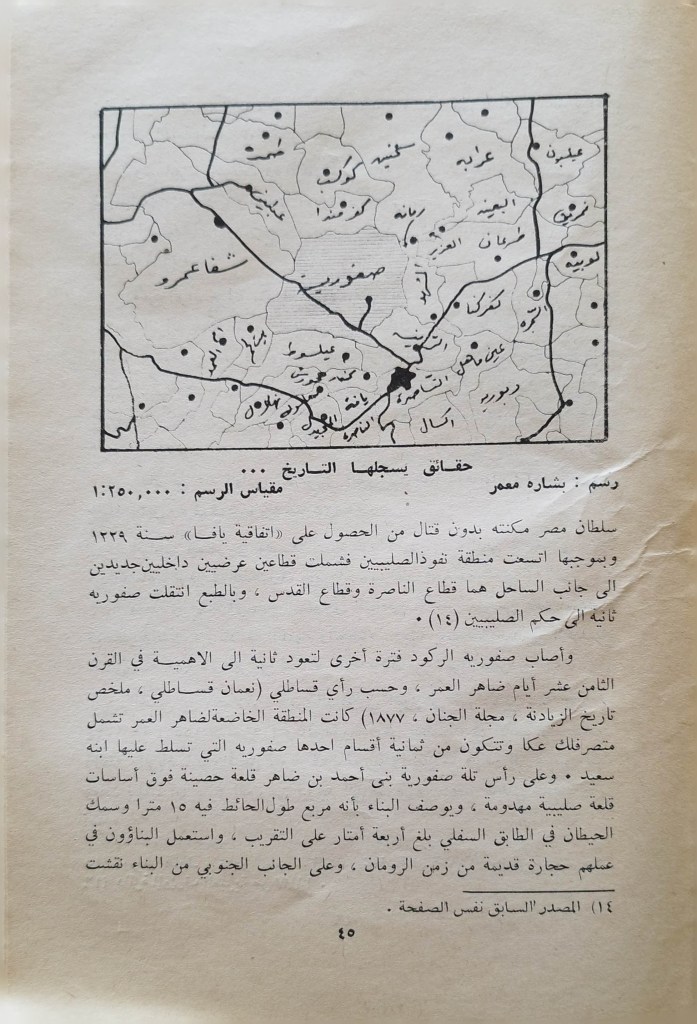 طمره
سخنين
عرابه
عيلبون
كوكب
عبلين
كفر مندا
رمانه
البعينه
نمرين
العزير
طرعان
لوبيه
شفاعمرو
صفورية
كفركنا
الشجره
الرينه
عين ماهل
عيلوط
الناصرة
يافة
دبوريه
معلول
المجيدل
الناصرة
اكسال
حقائق يسجلها التاريخ ...
رسم : بشاره معمر
مقياس الرسم : ١:٢٥٠,٠٠٠
سلطان مصر مكنته بدون قتال من الحصول على «اتفاقية يافا» سنة ١٢٢٩
وبموجبها اتسعت منطقة نفوذالصليبيين فشملت قطاعين عرضيين داخليين جديدين
الى جانب الساحل هما قطاع الناصرة وقطاع القدس ، وبالطبع انتقلت صفوريه
ثانية الى حكم الصليبيين (١٤) •
وأصاب صفوريه الركود فترة أخرى لتعود ثانية الى الاهمية في القرن
الثامن عشر أيام ضاهر العمر ، وحسب رأي قساطلي (نعمان قساطلي ، ملخص
تاريخ الزيادنة ، مجلة الجنان ، ١٨٧٧) كانت المنطقة الخاضعةلضاهر العمر تشمل
متصرفلك عكا وتتكون من ثمانية أقسام احدها صفوريه التي تسلط عليها ابنه
سعيد • وعلى رأس تلة صفورية بنى أحمد بن ضاهر قلعة حصينة فوق أساسات
قلعة صليبية مهدومة ، ويوصف البناء بأنه مربع طول الحائط فيه ١٥ مترا وسمك
الحيطان في الطابق السفلي بلغ أربعة أمتار على التقريب ، واستعمل البناؤون في
عملهم حجارة قديمة من زمن الرومان ، وعلى الجانب الجنوبي من البناء نقشت
١٤) المصدر السابق نفس الصفحة .
٤٥